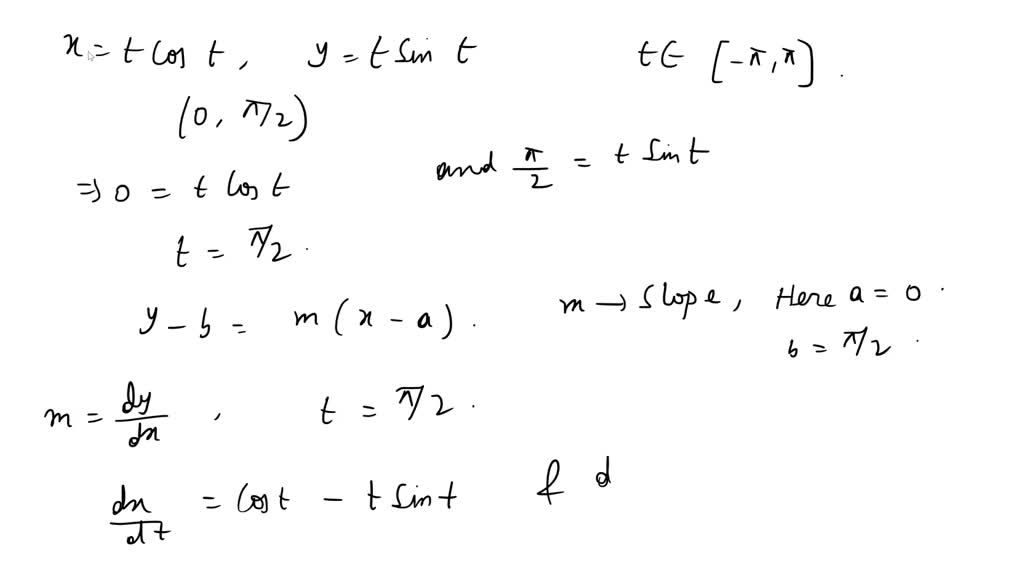 x = t Cos t, y = t Sin t t ∈ [-π, π].
(0, π/2)
⇒ 0 = t Cos t and π/2 = t Sin t
t = π/2.
y - b = m(x - a). m → Slope, Here a = 0.
b = π/2.
m = dy/dx, t = π/2.
dx/dt = Cos t - t Sin t & d